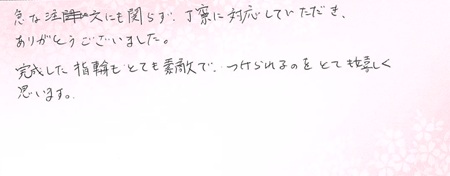 急な注文にも関らず、丁寧に対応していただき、
ありがとうございました。
完成した指輪もとても素敵で、つけられるのをとても嬉しく
思います。